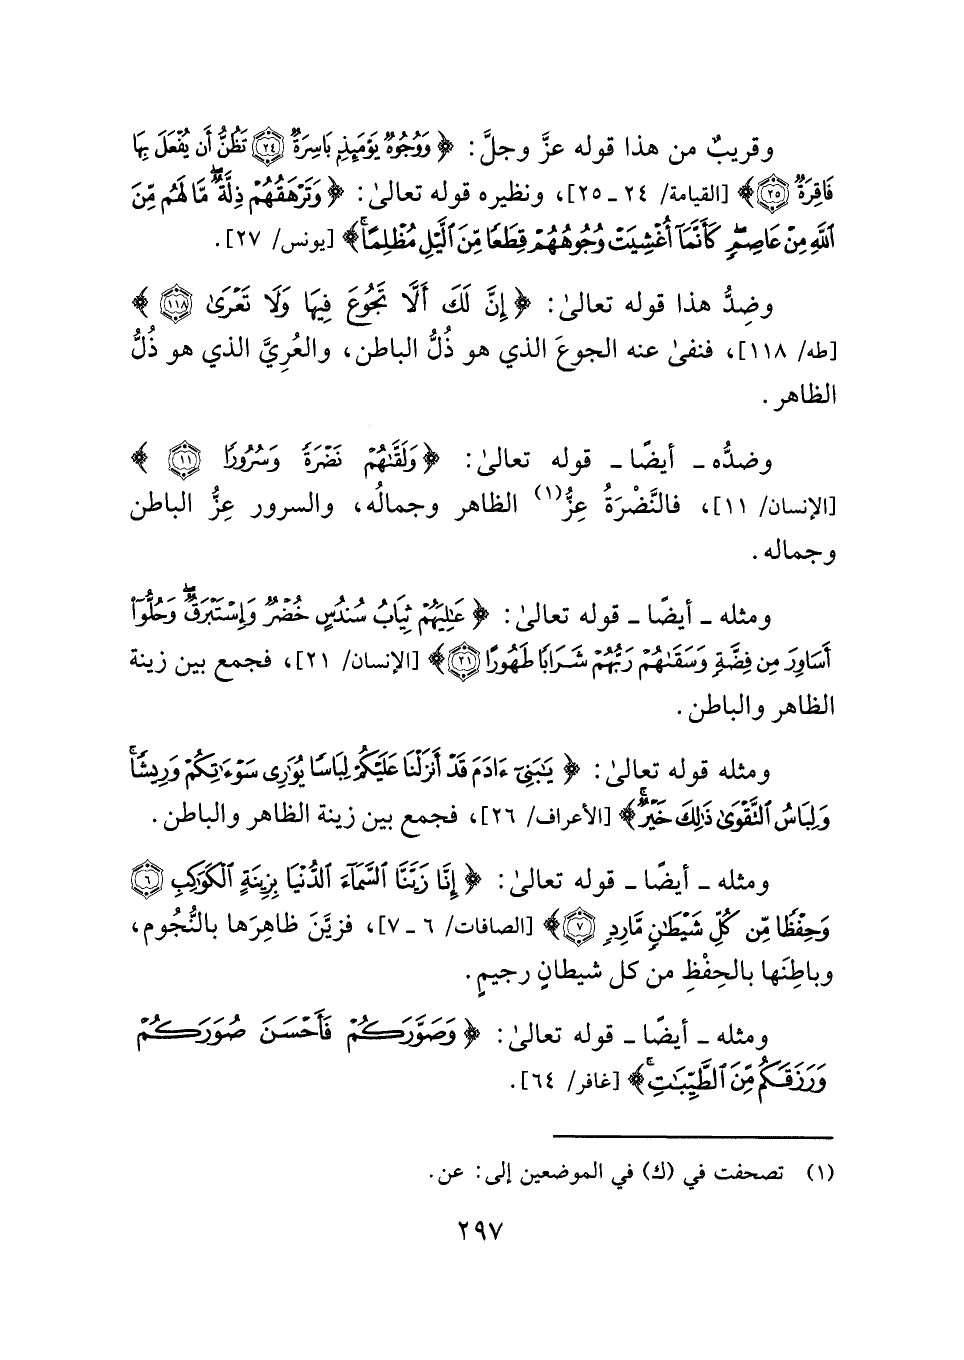 وقريبٌ من هذا قوله عزَّ وجلَّ: ﴿وَوُجُوهٌ يَوْمَئِذٍ بَاسِرَةٌ ﴿٢٤﴾ تَظُنُّ أَن يُفْعَلَ بِهَا
فَاقِرَةٌ ﴿٢٥﴾﴾ [القيامة/ ٢٤ ـ ٢٥]، ونظيره قوله تعالىٰ: ﴿وَتَرْهَقُهُمْ ذِلَّةٌ ۖ مَّا لَهُم مِّنَ
ٱللَّهِ مِنْ عَاصِمٍ ۖ كَأَنَّمَآ أُغْشِيَتْ وُجُوهُهُمْ قِطَعًا مِّنَ ٱلَّيْلِ مُظْلِمًا ۚ﴾ [يونس/ ٢٧].
وضِدُّ هذا قوله تعالىٰ: ﴿إِنَّ لَكَ أَلَّا تَجُوعَ فِيهَا وَلَا تَعْرَىٰ ﴿١١٨﴾﴾
[طه/ ١١٨]، فنفىٰ عنه الجوعَ الذي هو ذُلُّ الباطن، والعُرِيَّ الذي هو ذُلُّ
الظاهر.
وضدُّه ـ أيضًا ـ قوله تعالىٰ: ﴿وَلَقَّىٰهُمْ نَضْرَةً وَسُرُورًا ﴿١١﴾﴾
[الإنسان/ ١١]، فالنَّضْرَةُ عِزُّ(١) الظاهر وجمالُه، والسرور عِزُّ الباطن
وجماله.
ومثله ـ أيضًا ـ قوله تعالىٰ: ﴿عَٰلِيَهُمْ ثِيَابُ سُندُسٍ خُضْرٌ وَإِسْتَبْرَقٌ ۖ وَحُلُّوٓا۟
أَسَاوِرَ مِن فِضَّةٍ وَسَقَىٰهُمْ رَبُّهُمْ شَرَابًا طَهُورًا ﴿٢١﴾﴾ [الإنسان/ ٢١]، فجمع بين زينة
الظاهر والباطن.
ومثله قوله تعالىٰ: ﴿يَٰبَنِىٓ ءَادَمَ قَدْ أَنزَلْنَا عَلَيْكُمْ لِبَاسًا يُوَٰرِى سَوْءَٰتِكُمْ وَرِيشًا ۖ
وَلِبَاسُ ٱلتَّقْوَىٰ ذَٰلِكَ خَيْرٌ ۚ﴾ [الأعراف/ ٢٦]، فجمع بين زينة الظاهر والباطن.
ومثله ـ أيضًا ـ قوله تعالىٰ: ﴿إِنَّا زَيَّنَّا ٱلسَّمَآءَ ٱلدُّنْيَا بِزِينَةٍ ٱلْكَوَاكِبِ ﴿٦﴾
وَحِفْظًا مِّن كُلِّ شَيْطَٰنٍ مَّارِدٍ ﴿٧﴾﴾ [الصافات/ ٦ ـ ٧]، فزيَّنَ ظاهِرَها بالنُّجُوم،
وباطِنَها بالحِفْظِ من كل شيطانٍ رجيمٍ.
ومثله ـ أيضًا ـ قوله تعالىٰ: ﴿وَصَوَّرَكُمْ فَأَحْسَنَ صُوَرَكُمْ
وَرَزَقَكُم مِّنَ ٱلطَّيِّبَٰتِ ۚ﴾ [غافر/ ٦٤].
(١) تصحفت في (ك) في الموضعين إلى: عن.
٢٩٧